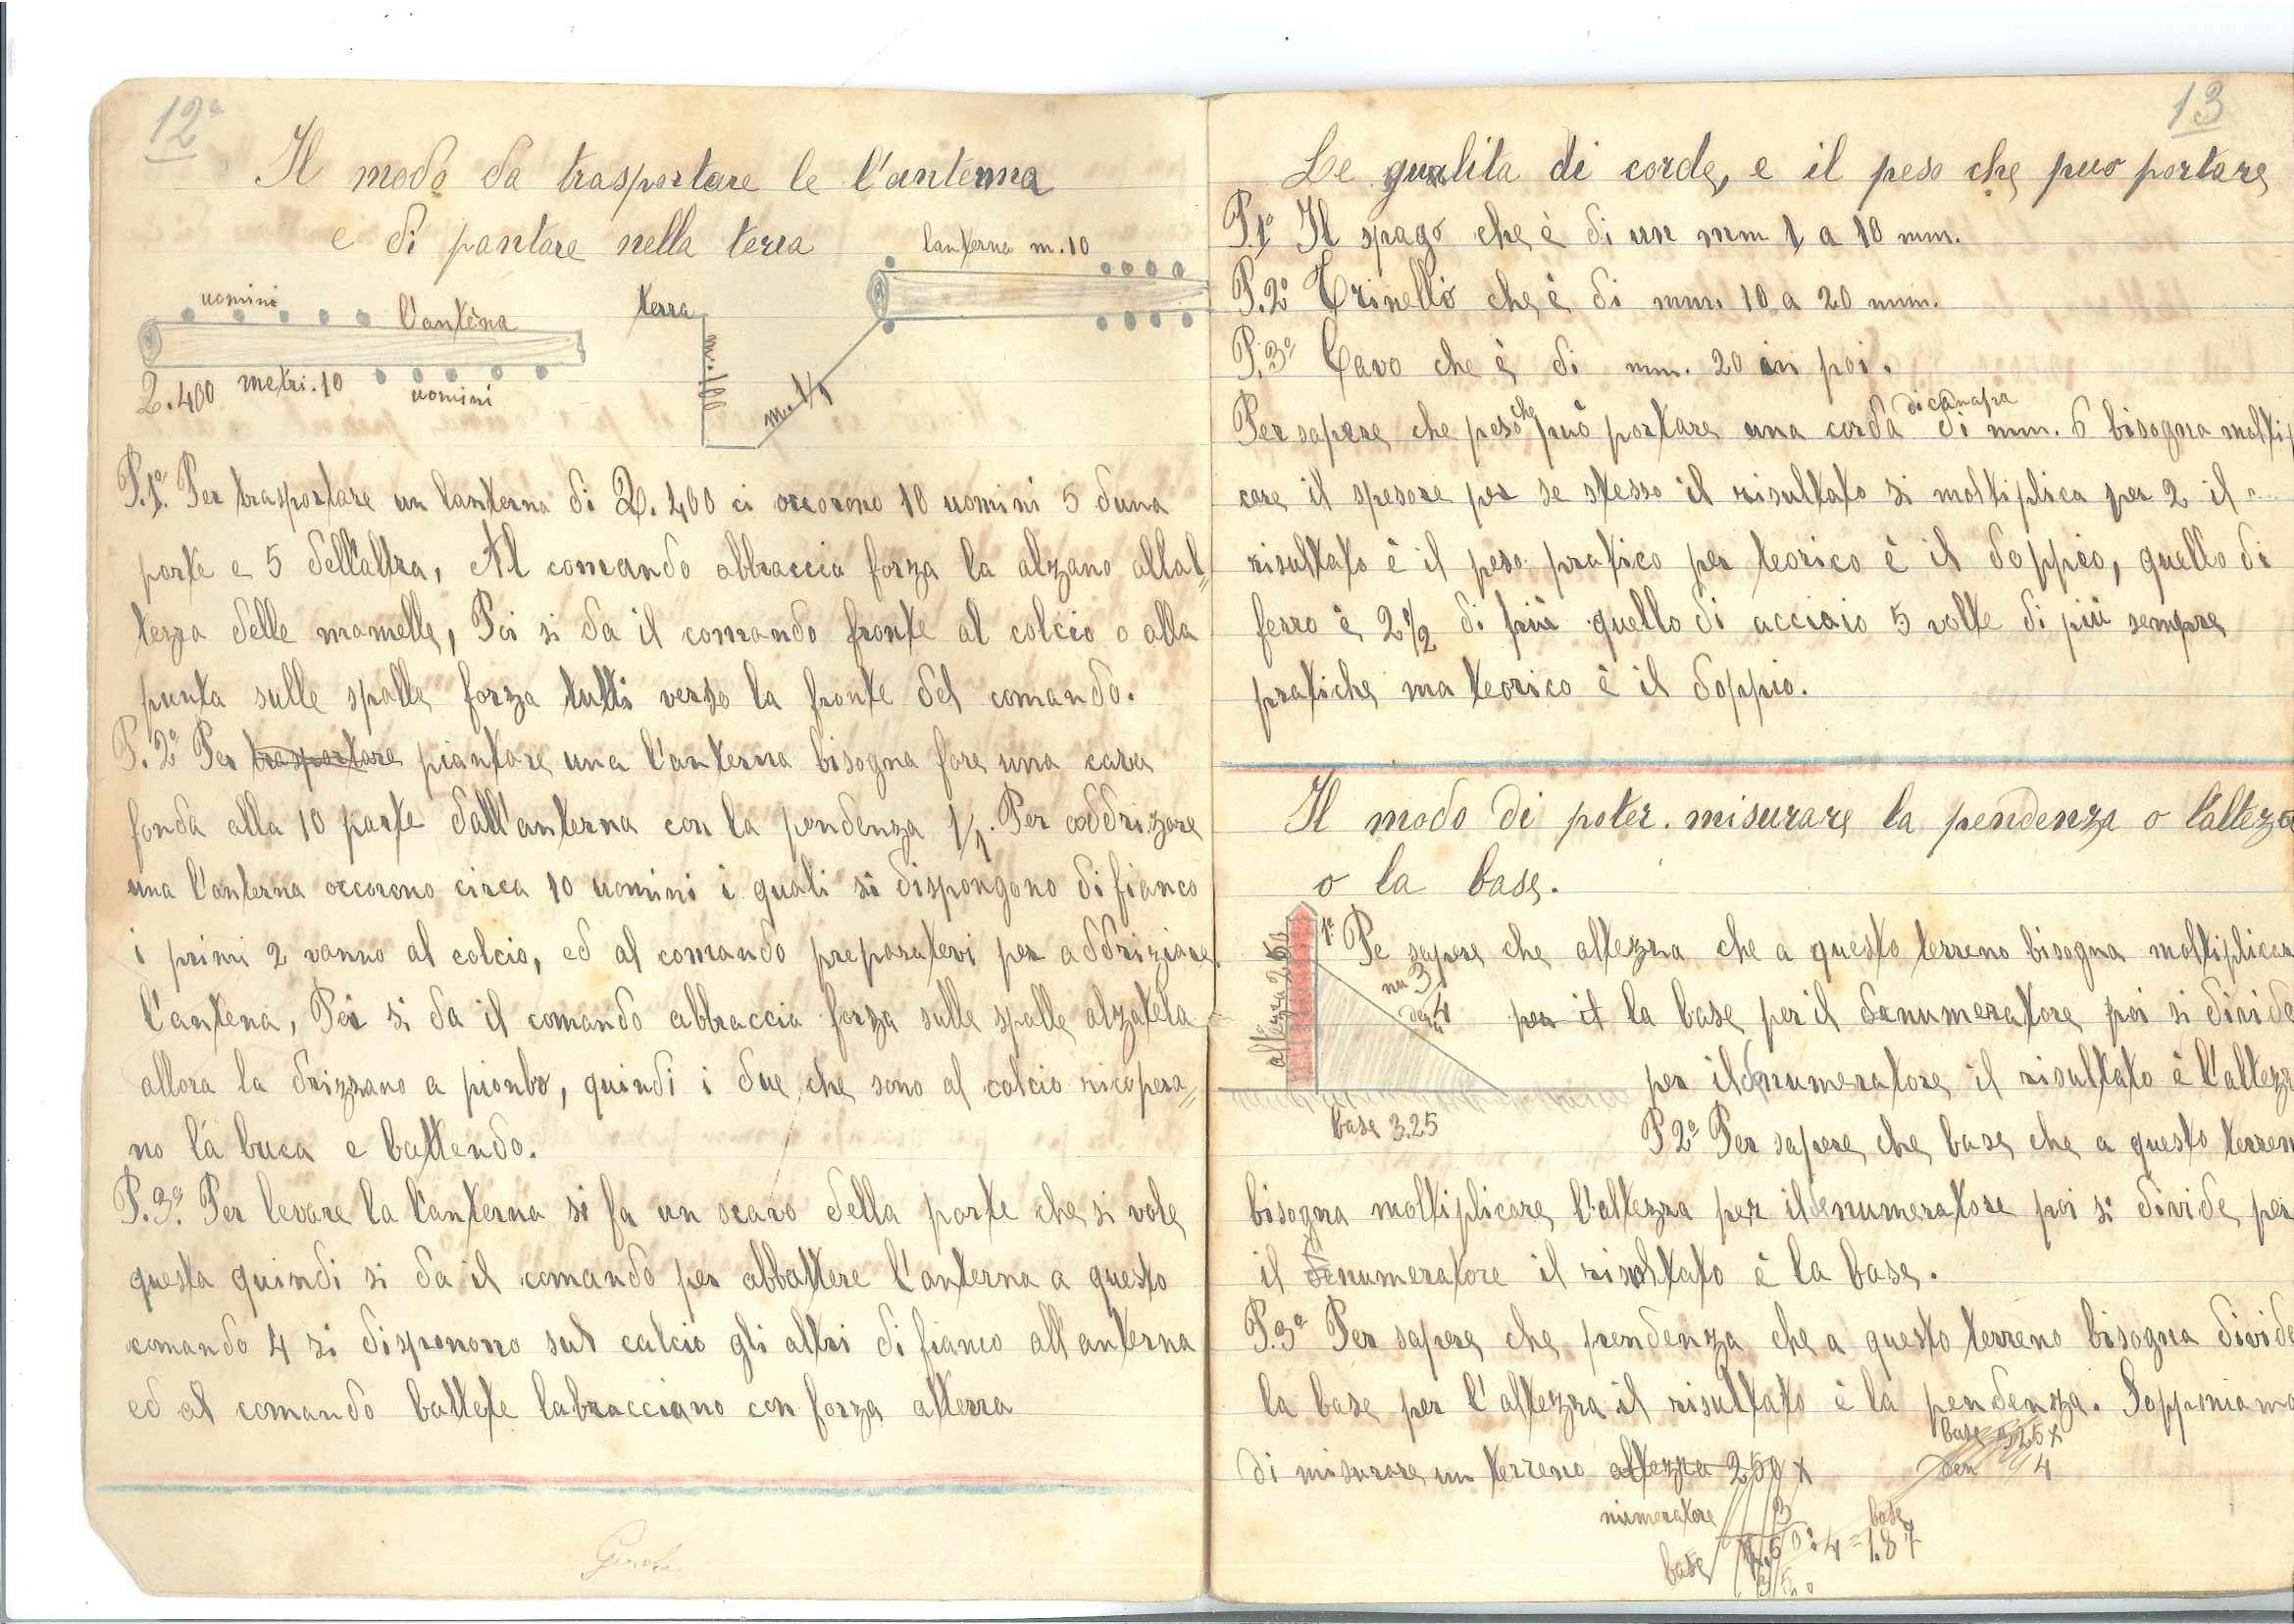 12ª
Il modo da trasportare le l'antenna
e di pantare nella terra
lanterna m. 10
uomini
l'antèna
terra
m. 1.00
Q. 400 metri. 10
uomini
m. 1/1
P. 1º. Per trasportare un lanterna di Q. 400 ci occorono 10 uomini 5 duna
parte e 5 dell'altra, Al comando abbraccia forza la alzano allal=
tezza delle mamelle, Poi si da il comando fronte al calcio o alla
punta sulle spalle forza tutti verso la fronte del comando.
P. 2º Per trasportare piantare una l'anterna bisogna fare una cava
fonda alla 10 parte dall'anterna con la pendenza 1/1. Per addrizzare
una l'anterna occorono circa 10 uomini i quali si dispongono di fianco
i primi 2 vanno al calcio, ed al comando preparatevi per addriziare
l'antena, Poi si da il comando abbraccia forza sulle spalle alzatela
allora la drizzano a pionbo, quindi i due che sono al calcio ricopera=
no la buca e battendo.
P. 3º. Per levare la l'anterna si fa un scavo della parte che si vole
questa quindi si da il comando per abbattere l'anterna a questo
comando 4 si disponorro sul calcio gli altri di fianco all'anterna
ed al comando battete labracciano con forza atterra
13
Le qualita di corde, e il peso che puo portare
P. 1º Il spago che è di un mm 1 a 10 mm.
P. 2º Trinello che è di mm. 10 a 20 mm.
P. 3º Cavo che è di mm. 20 in poi.
Per sapere che peso che può portare una corda di canapa di mm. 6 bisogna moltip
care il spesore per se stesso il risultato si moltiplica per 2 il
risultato è il peso pratico per teorico è il doppio, quello di
ferro è 2 1/2 di più quello di acciaio 5 volte di più sempre
pratiche ma teorico è il doppio.
Il modo di poter. misurare la pendenza o l'alteza
o la base.
1º Pe sapere che altezza che a questo terreno bisogna moltiplicar
altezza 2.50
nu 3
den 4
per il la base per il denumeratore poi si divide
per il denumeratore il risultato è l'altezz
base 3.25
P 2º Per sapere che base che a questo terren
bisogna moltiplicare l'altezza per il denumeratore poi si divide per
il denumeratore il risoltato è la base.
P. 3º Per sapere che pendenza che a questo terreno bisogna divide
la base per l'altezza il risultato è la pendenza. Sopponiamo
base 3.25 x
di misurare un terreno altezza 250 x
den 4
numeratore 3
base
: 4 = 1.87
base